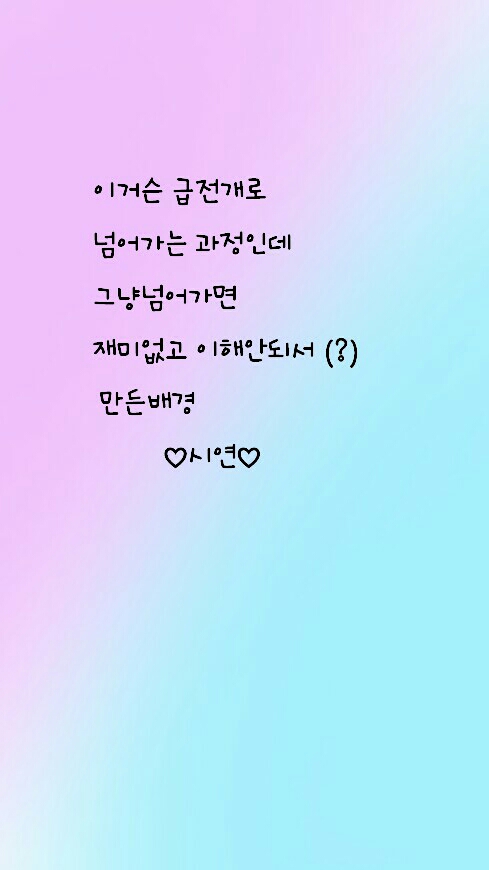 이거슨 급전개로
넘어가는 과정인데
그냥넘어가면
재미없고 이해안되서 (?)
만든배경
♡시연♡